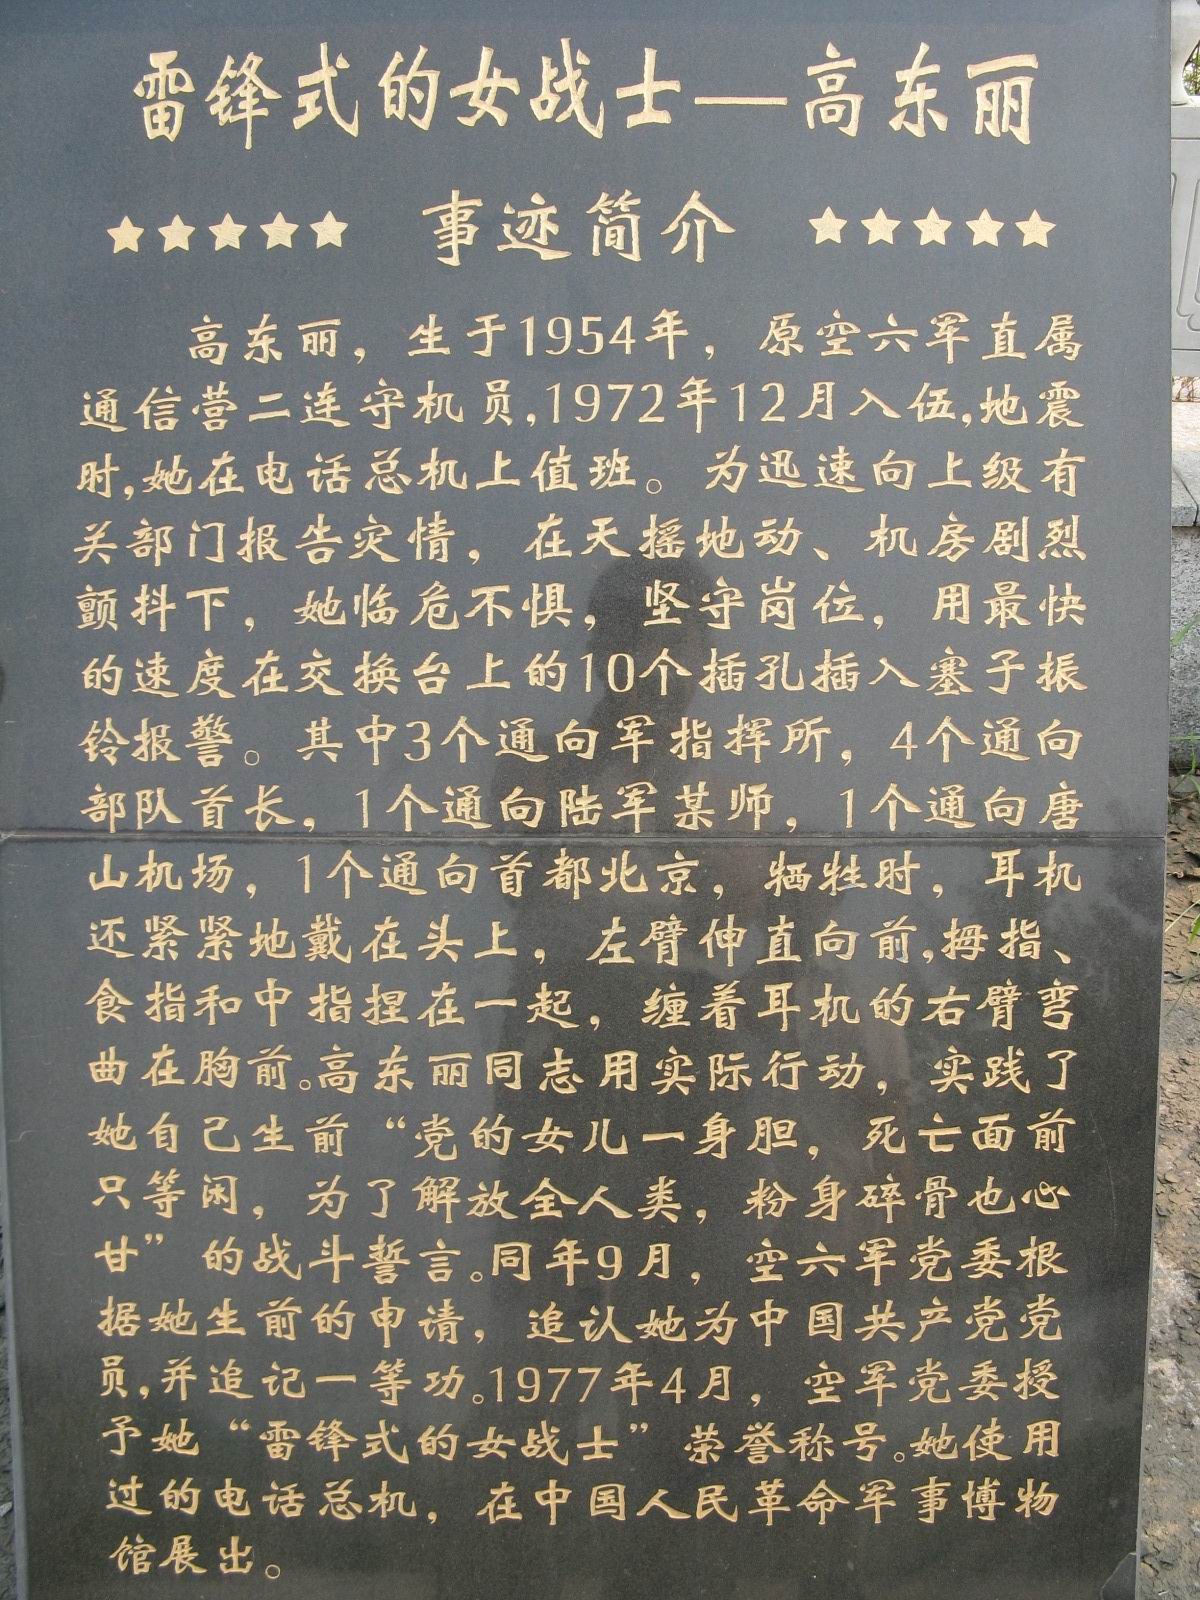 雷锋式的女战士——高东丽
★★★★★ 事迹简介 ★★★★★
高东丽，生于1954年，原空六军直属
通信营二连守机员,1972年12月入伍,地震
时,她在电话总机上值班。为迅速向上级有
关部门报告灾情，在天摇地动、机房剧烈
颤抖下，她临危不惧，坚守岗位，用最快
的速度在交换台上的10个插孔插入塞子振
铃报警。其中3个通向军指挥所，4个通向
部队首长，1个通向陆军某师，1个通向唐
山机场，1个通向首都北京，牺牲时，耳机
还紧紧地戴在头上，左臂伸直向前,拇指、
食指和中指捏在一起，缠着耳机的右臂弯
曲在胸前。高东丽同志用实际行动，实践了
她自己生前“党的女儿一身胆，死亡面前
只等闲，为了解放全人类，粉身碎骨也心
甘”的战斗誓言。同年9月，空六军党委根
据她生前的申请，追认她为中国共产党党
员,并追记一等功。1977年4月，空军党委授
予她“雷锋式的女战士”荣誉称号。她使用
过的电话总机，在中国人民革命军事博物
馆展出。